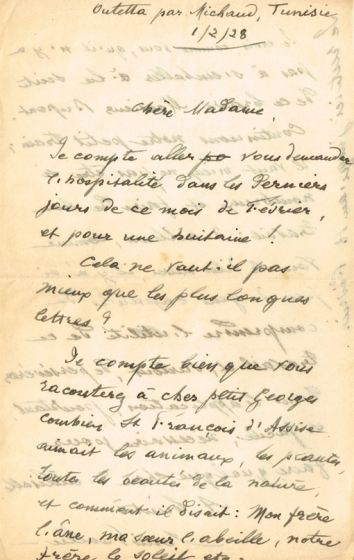 Outetta par Michaud, Tunisie
1/2/28
Chère Madame,
Je compte aller vous demander
l'hospitalité dans les derniers
jours de ce mois de Février,
et pour une huitaine !
Cela ne vaut-il pas
mieux que les plus longues
lettres ?
Je compte bien que vous
raconterez à cher petit Georges
combien St François d'Assise
aimait les animaux, les plantes
toutes les beautés de la nature,
et comment il disait : Mon frère
l'âne, ma sœur l'abeille, notre
frère le soleil etc.